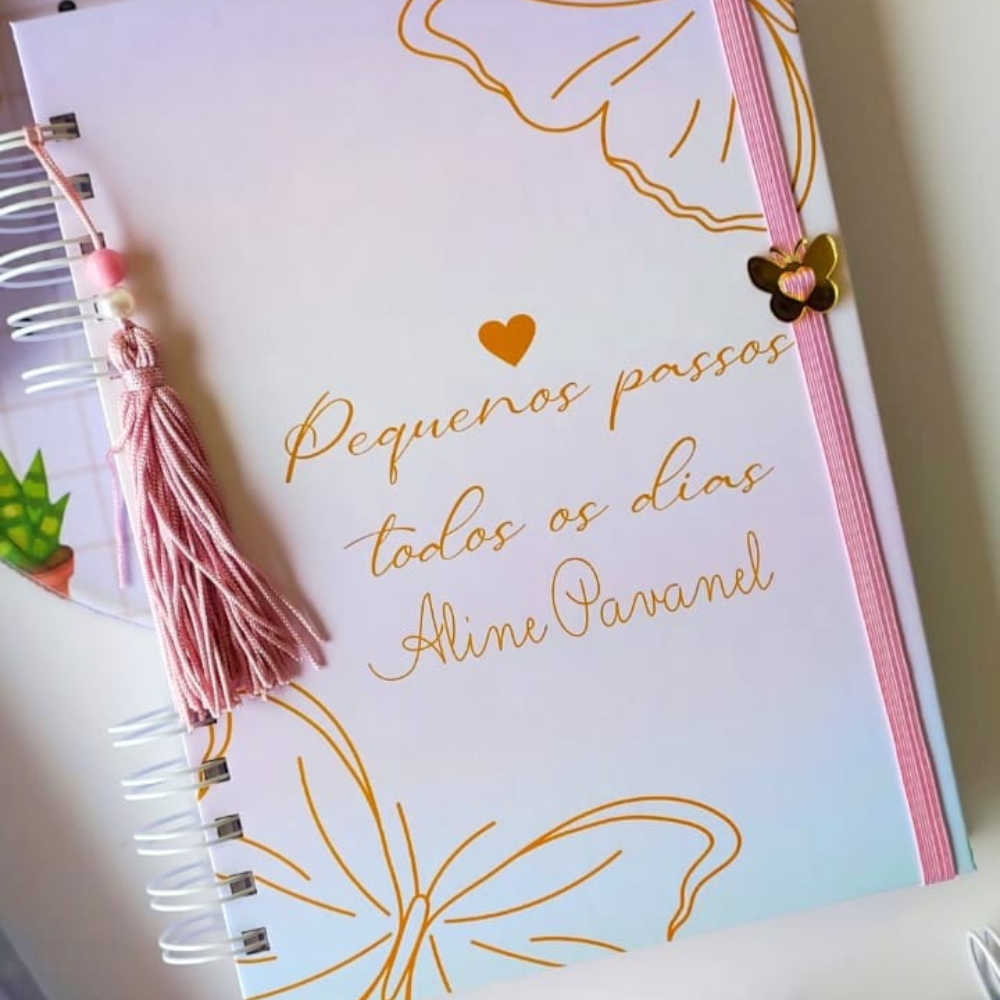 Pequenos passos
todos os dias
Aline Pavanel